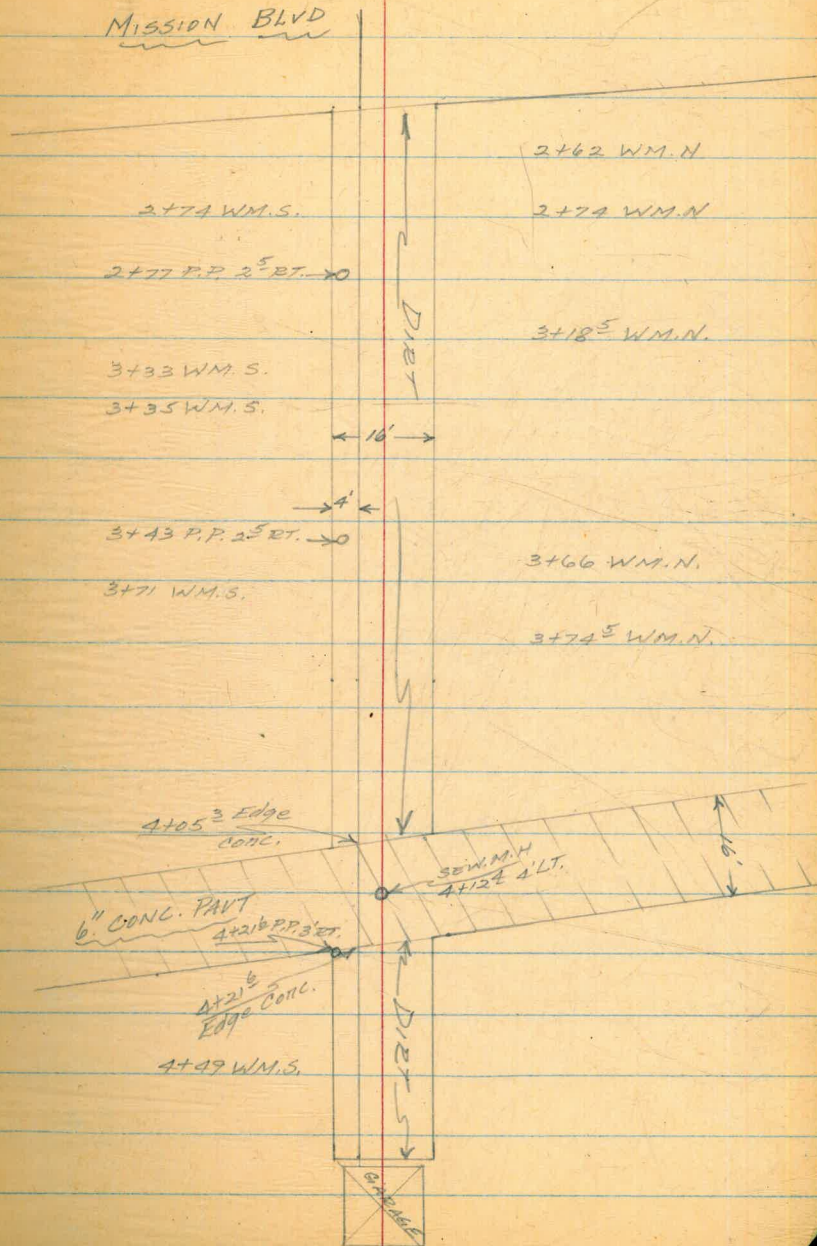 MISSION BLVD
2+62 WM.N
2+74 WM.S.
2+74 WM.N
2+77 P.P. 2⁵ RT.
DIRT
3+18⁵ WM.N.
3+33 WM.S.
3+35 WM.S.
16'
4'
3+43 P.P. 2⁵ RT.
3+66 WM.N.
3+71 WM.S.
3+74⁵ WM.N.
4+05³ Edge
Conc.
16'
SEW.M.H
4+12⁴ 4' LT.
6" CONC. PAVT
4+21⁶ P.P. 3' RT.
4+21⁶ S
Edge Conc.
DIRT
4+49 WM.S.
GARAGE